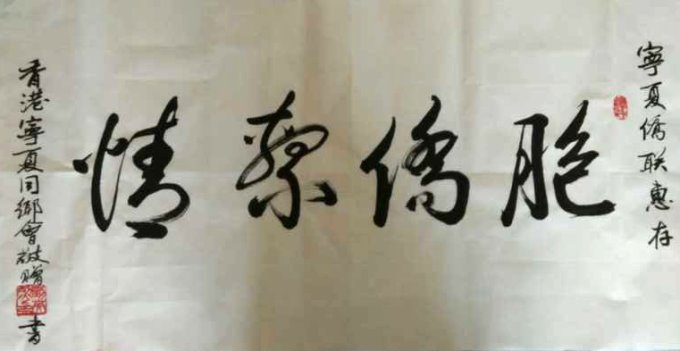 寧夏僑联惠存
情繫僑胞
香港寧夏同鄉會敬贈
書